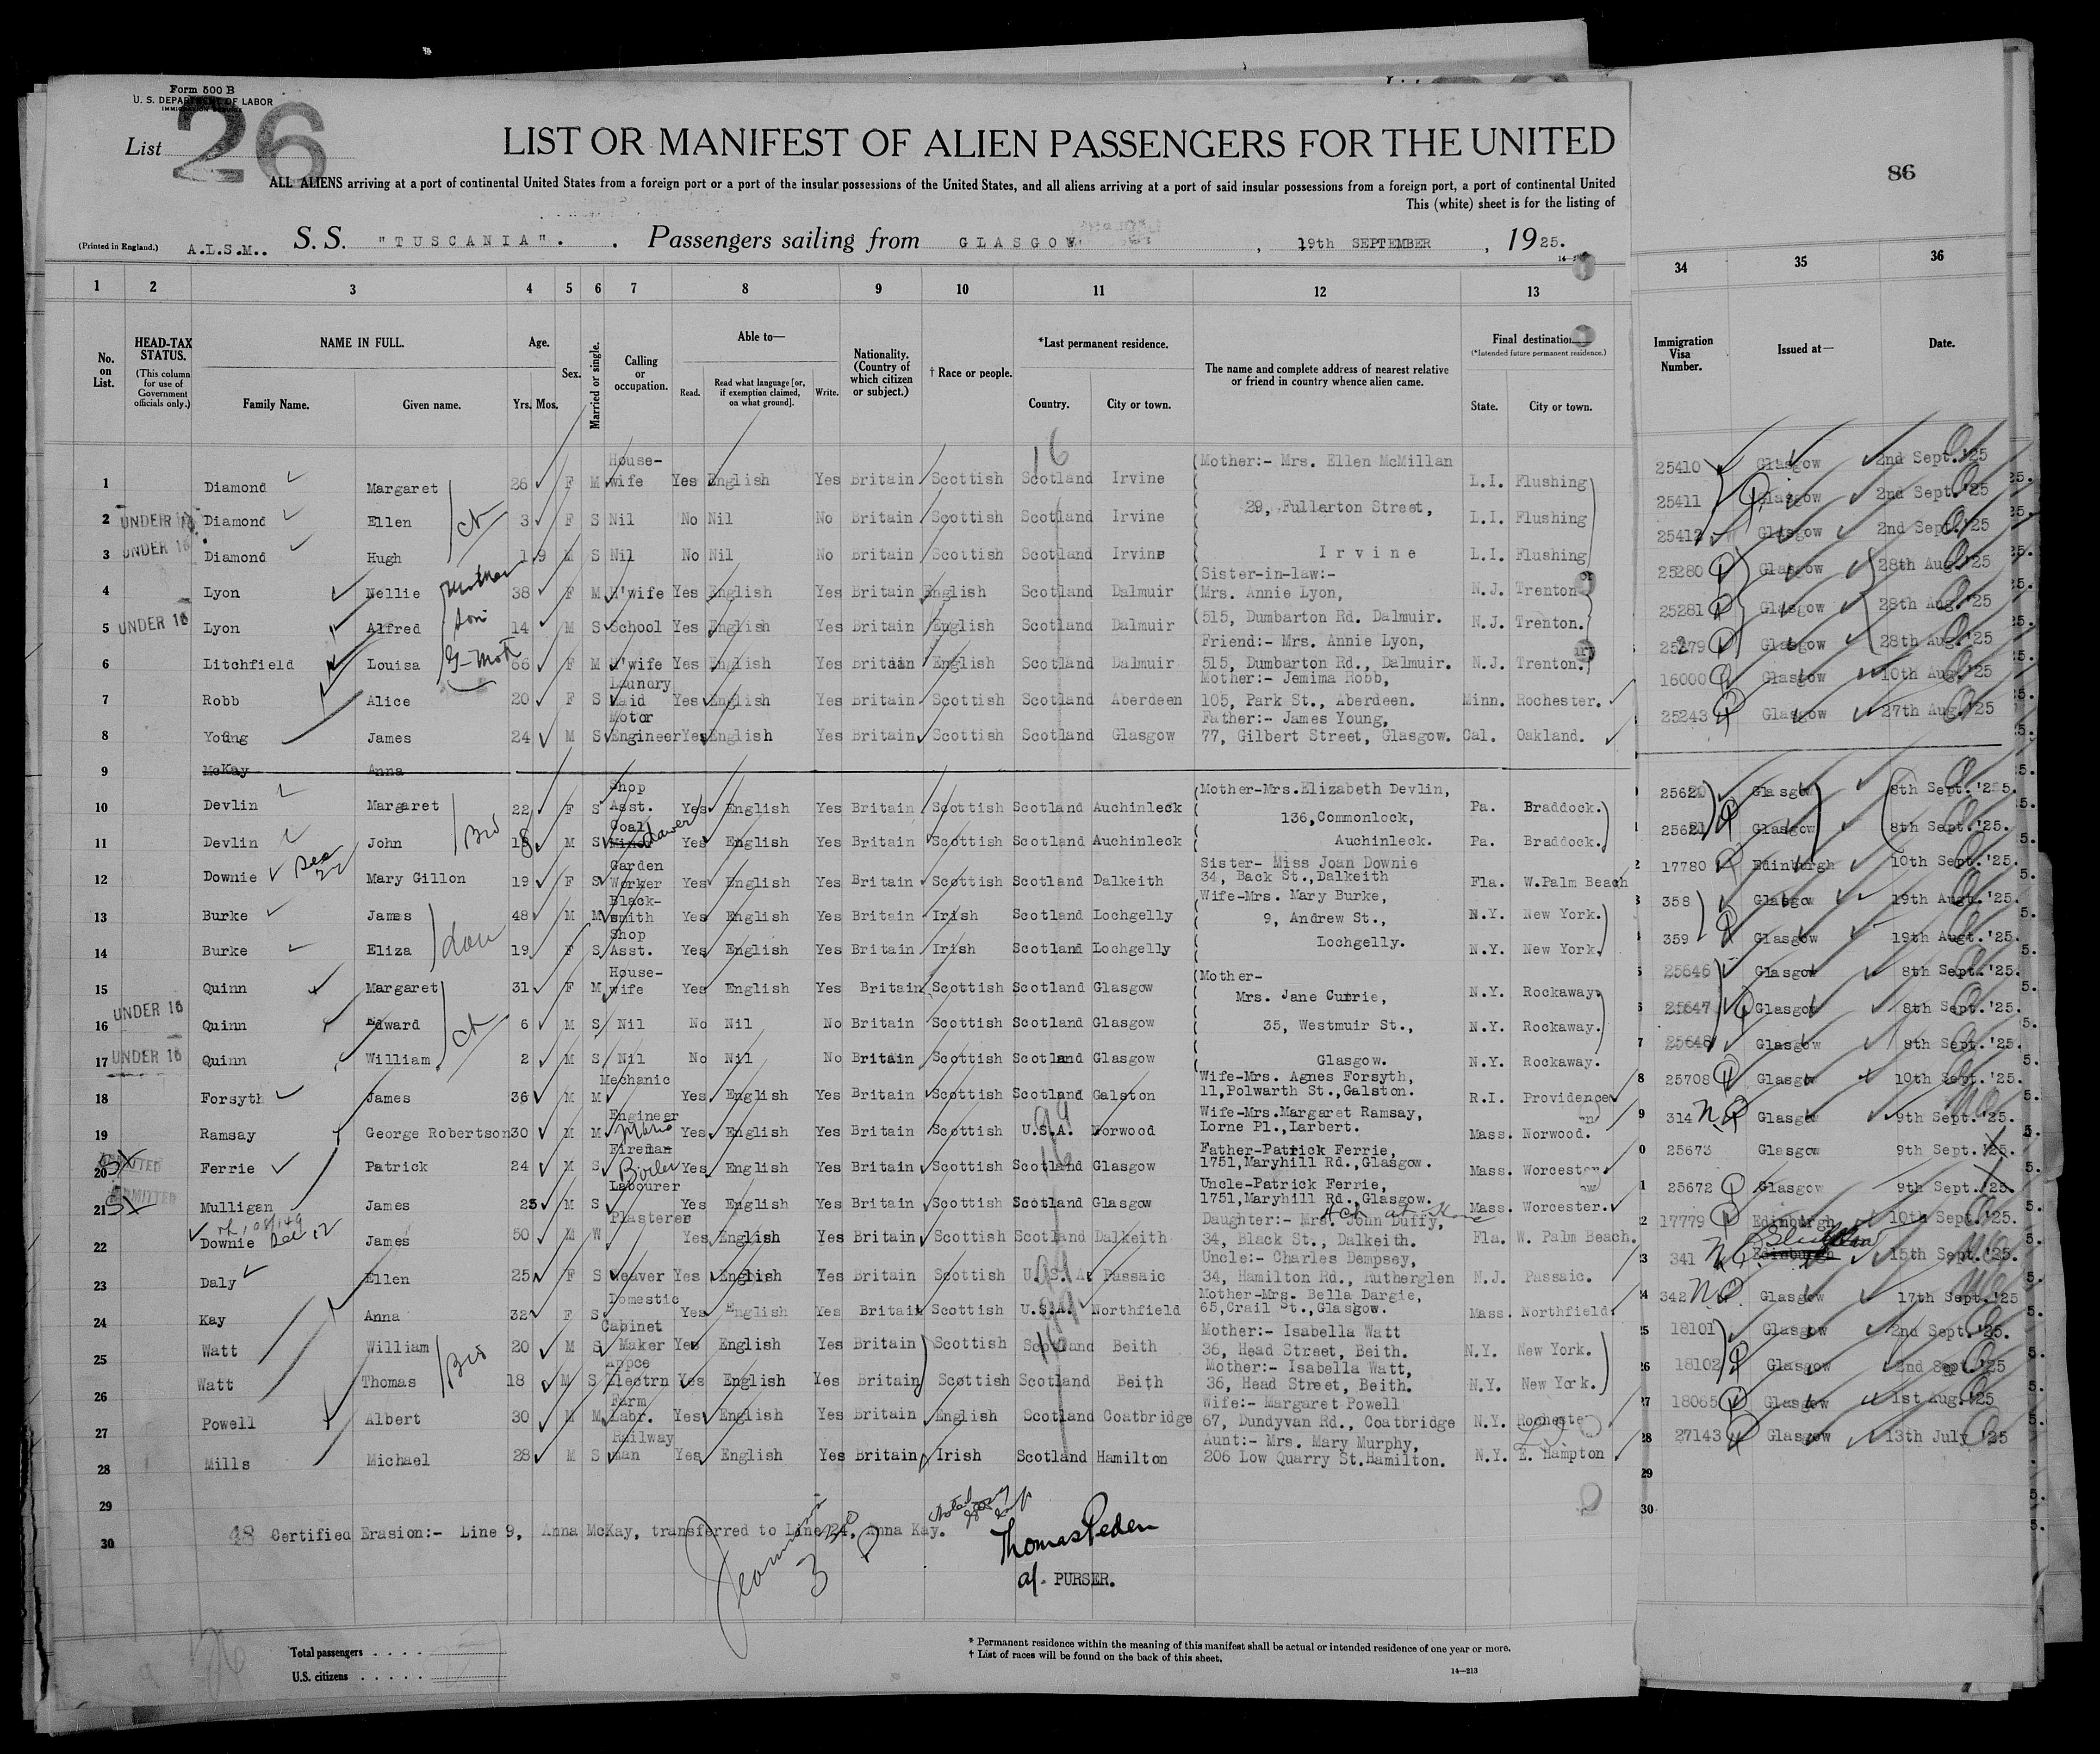 Form 500 B
U. S. DEPARTMENT OF LABOR
IMMIGRATION SERVICE
List 26
LIST OR MANIFEST OF ALIEN PASSENGERS FOR THE UNITED
86
ALL ALIENS arriving at a port of continental United States from a foreign port or a port of the insular possessions of the United States, and all aliens arriving at a port of said insular possessions from a foreign port, a port of continental United
This (white) sheet is for the listing of
(Printed in England.) A.L.S.M.. S. S. "TUSCANIA". Passengers sailing from GLASGOW, 19th SEPTEMBER, 1925.
1 2 3 4 5 6 7 8 9 10 11 12 13 34 35 36
No. on List. HEAD-TAX STATUS. (This column for use of Government officials only.) NAME IN FULL. Family Name. Given name. Age. Yrs. Mos. Sex. Married or single. Calling or occupation. Able to— Read. Read what language [or, if exemption claimed, on what ground]. Write. Nationality. (Country of which citizen or subject.) † Race or people. *Last permanent residence. Country. City or town. The name and complete address of nearest relative or friend in country whence alien came. Final destination (*Intended future permanent residence.) State. City or town. Immigration Visa Number. Issued at— Date.
16
1 Diamond Margaret 26 F M House-wife Yes English Yes Britain Scottish Scotland Irvine (Mother:- Mrs. Ellen McMillan L.I. Flushing 25410 Glasgow 2nd Sept.'25
2 UNDER 16 Diamond Ellen 3 F S Nil No Nil No Britain Scottish Scotland Irvine 29, Fullarton Street, L.I. Flushing 25411 Glasgow 2nd Sept.'25
3 UNDER 16 Diamond Hugh 1 9 M S Nil No Nil No Britain Scottish Scotland Irvine Irvine L.I. Flushing 25412 Glasgow 2nd Sept.'25
4 Lyon Nellie 38 F M H'wife Yes English Yes Britain English Scotland Dalmuir (Sister-in-law:- (Mrs. Annie Lyon, N.J. Trenton 25280 Glasgow 28th Aug.'25
5 UNDER 16 Lyon Alfred son 14 M S School Yes English Yes Britain English Scotland Dalmuir (515, Dumbarton Rd. Dalmuir. N.J. Trenton. 25281 Glasgow 28th Aug.'25
6 Litchfield Louisa 66 F M H'wife Yes English Yes Britain English Scotland Dalmuir Friend:- Mrs. Annie Lyon, 515, Dumbarton Rd., Dalmuir. N.J. Trenton. 25279 Glasgow 28th Aug.'25
7 Robb Alice 20 F S Laundry Maid Yes English Yes Britain Scottish Scotland Aberdeen Mother:- Jemima Robb, 105, Park St., Aberdeen. Minn. Rochester. 16000 Glasgow 10th Aug.'25
8 Young James 24 M S Motor Engineer Yes English Yes Britain Scottish Scotland Glasgow Father:- James Young, 77, Gilbert Street, Glasgow. Cal. Oakland. 25243 Glasgow 27th Aug.'25
9 McKay Anna
10 Devlin Margaret 22 F S Shop Asst. Yes English Yes Britain Scottish Scotland Auchinleck (Mother-Mrs.Elizabeth Devlin, Pa. Braddock. 25620 Glasgow 8th Sept.'25.
11 Devlin John Bro 18 M S Coal Miner Yes English Yes Britain Scottish Scotland Auchinleck 136,Commonlock, Auchinleck. Pa. Braddock. 25621 Glasgow 8th Sept.'25.
12 Downie Mary Gillon 19 F S Garden Worker Yes English Yes Britain Scottish Scotland Dalkeith Sister- Miss Joan Downie 34, Back St.,Dalkeith Fla. W.Palm Beach 17780 Edinburgh 10th Sept.'25.
13 Burke James 48 M M Black-smith Yes English Yes Britain Irish Scotland Lochgelly Wife-Mrs. Mary Burke, 9, Andrew St., N.Y. New York. 358 Glasgow 19th Augt.'25.
14 Burke Eliza 19 F S Shop Asst. Yes English Yes Britain Irish Scotland Lochgelly Lochgelly. N.Y. New York. 359 Glasgow 19th Augt.'25.
15 Quinn Margaret 31 F M House-wife Yes English Yes Britain Scottish Scotland Glasgow (Mother- Mrs. Jane Currie, N.Y. Rockaway. 25646 Glasgow 8th Sept.'25.
16 UNDER 16 Quinn Edward 6 M S Nil No Nil No Britain Scottish Scotland Glasgow 35, Westmuir St., N.Y. Rockaway. 25647 Glasgow 8th Sept.'25.
17 UNDER 16 Quinn William 2 M S Nil No Nil No Britain Scottish Scotland Glasgow Glasgow. N.Y. Rockaway. 25648 Glasgow 8th Sept.'25.
18 Forsyth James 36 M M Mechanic Yes English Yes Britain Scottish Scotland Galston Wife-Mrs. Agnes Forsyth, 11,Polwarth St.,Galston. R.I. Providence 25708 Glasgow 10th Sept.'25.
19 Ramsay George Robertson 30 M M Engineer Yes English Yes Britain Scottish U.S.A. Norwood Wife-Mrs.Margaret Ramsay, Lorne Pl.,Larbert. Mass. Norwood. 314 Glasgow 9th Sept.'25.
20 ADMITTED Ferrie Patrick 24 M S Fireman Boiler Yes English Yes Britain Scottish Scotland Glasgow Father-Patrick Ferrie, 1751,Maryhill Rd.,Glasgow. Mass. Worcester 25673 Glasgow 9th Sept.'25.
21 ADMITTED Mulligan James 25 M S Labourer Yes English Yes Britain Scottish Scotland Glasgow Uncle-Patrick Ferrie, 1751,Maryhill Rd.,Glasgow. Mass. Worcester. 25672 Glasgow 9th Sept.'25.
22 Downie James 50 M W Plasterer Yes English Yes Britain Scottish Scotland Dalkeith Daughter:- Mrs. John Duffy, 34, Black St., Dalkeith. Fla. W. Palm Beach. 17779 Edinburgh 10th Sept.'25.
23 Daly Ellen 25 F S Weaver Yes English Yes Britain Scottish U.S.A. Passaic Uncle:- Charles Dempsey, 34, Hamilton Rd., Rutherglen N.J. Passaic. 341 Edinburgh 15th Sept.'25.
24 Kay Anna 32 F S Domestic Yes English Yes Britain Scottish U.S.A. Northfield Mother-Mrs. Bella Dargie, 65,Crail St.,Glasgow. Mass. Northfield. 342 Glasgow 17th Sept.'25
25 Watt William 20 M S Cabinet Maker Yes English Yes Britain Scottish Scotland Beith Mother:- Isabella Watt 36, Head Street, Beith. N.Y. New York. 18101 Glasgow 2nd Sept.'25.
26 Watt Thomas Bro 18 M S Appce Electrn Yes English Yes Britain Scottish Scotland Beith Mother:- Isabella Watt, 36, Head Street, Beith. N.Y. New York. 18102 Glasgow 2nd Sept.'25
27 Powell Albert 30 M M Farm Labr. Yes English Yes Britain English Scotland Coatbridge Wife:- Margaret Powell 67, Dundyvan Rd., Coatbridge N.Y. Rochester 18065 Glasgow 1st Aug.'25
28 Mills Michael 28 M S Railway man Yes English Yes Britain Irish Scotland Hamilton Aunt:- Mrs. Mary Murphy, 206 Low Quarry St.Hamilton. N.Y. E. Hampton 27143 Glasgow 13th July '25
29
30 48 Certified Erasion:- Line 9, Anna McKay, transferred to Line 24, Anna Kay.
Thomas Peden
a/. PURSER.
Total passengers . . . .
U.S. citizens . . . . .
* Permanent residence within the meaning of this manifest shall be actual or intended residence of one year or more.
† List of races will be found on the back of this sheet.
14—213